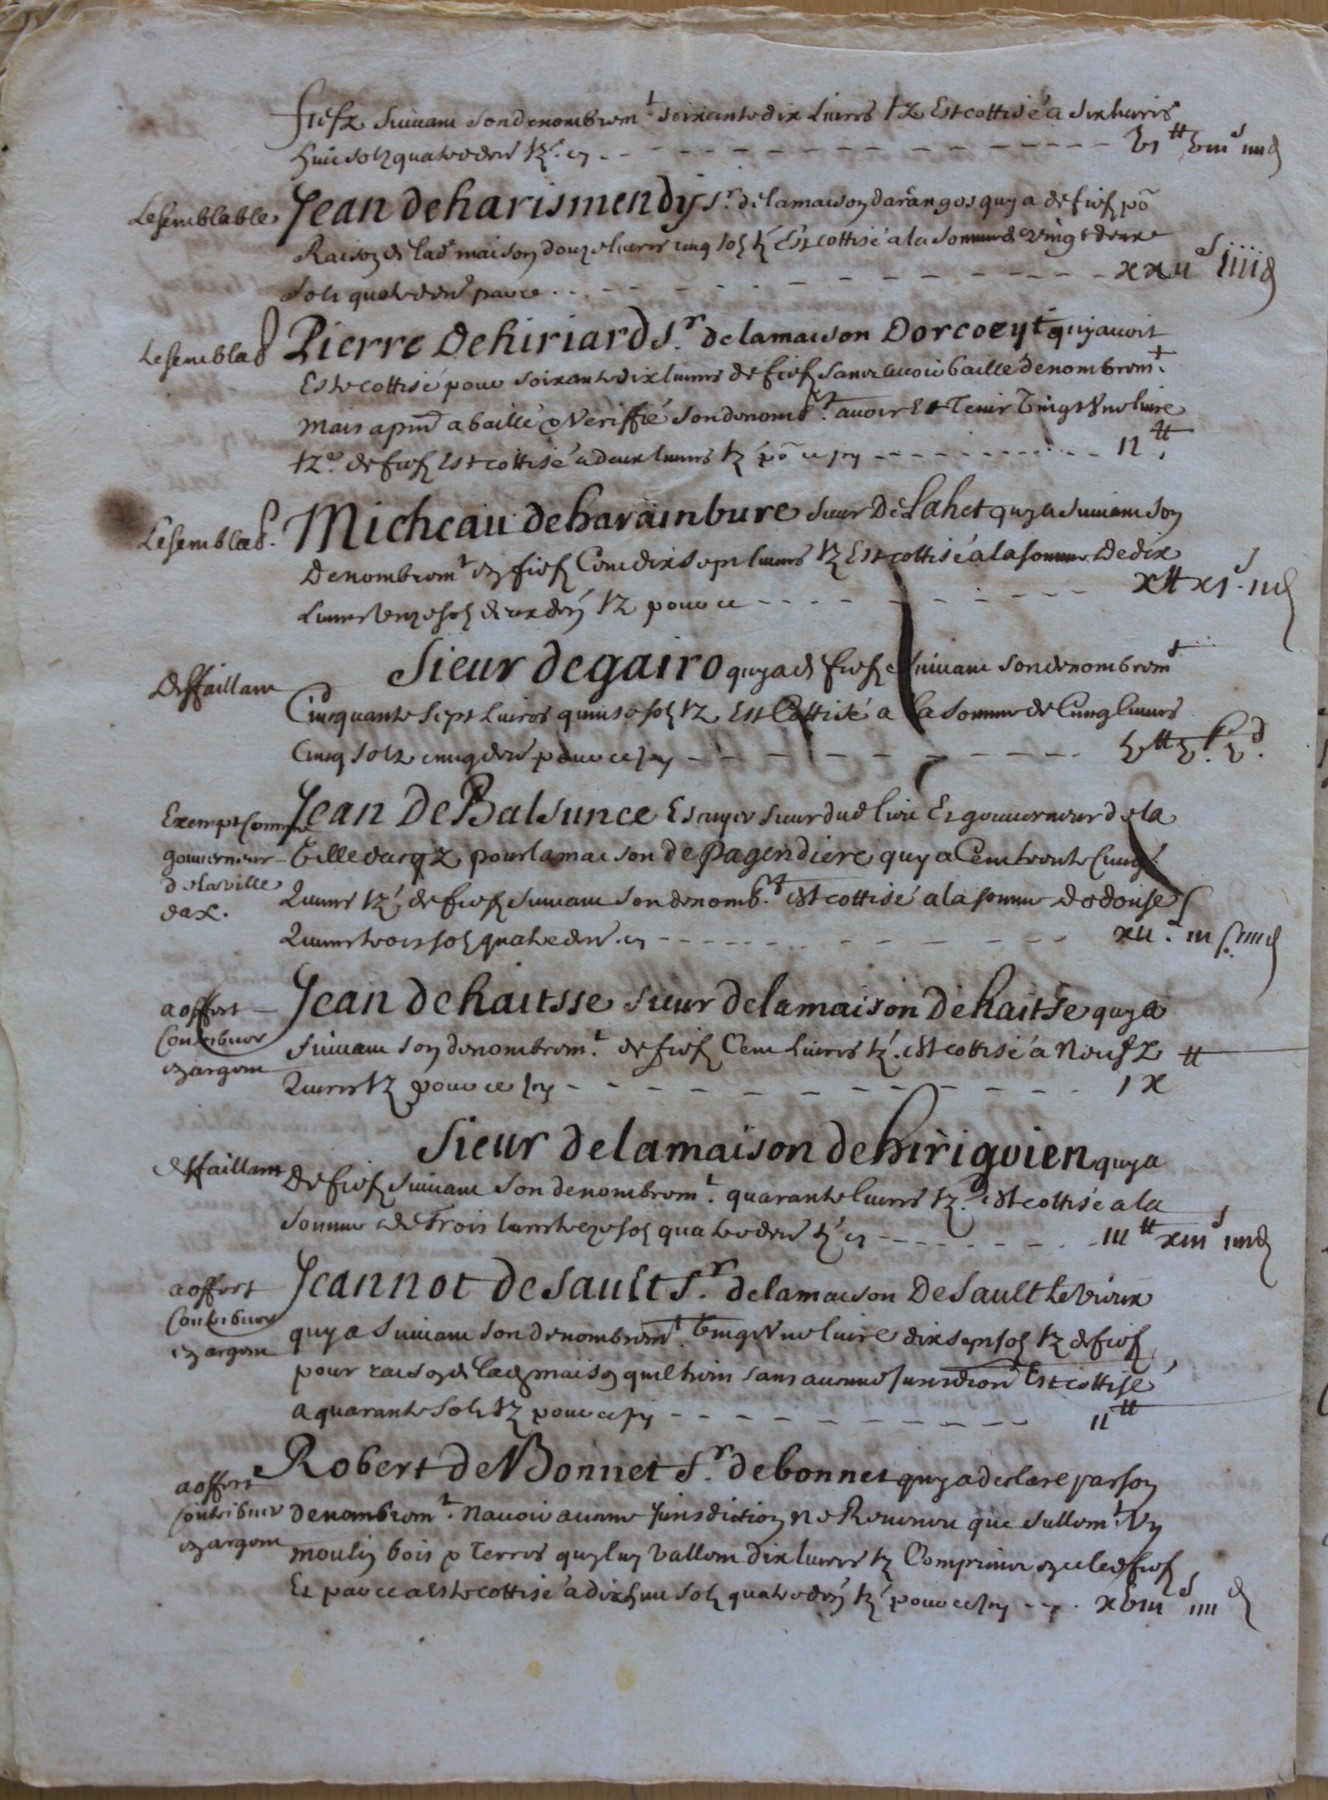 fiefz suivant son denombrem.t soixante dix livres tz Est cottisé a six livres
huict solz quatre den.s tz. cy - - - vi ₶ viii s iiii d
Le semblable Jean de harismendy s.r de la maison darangos quy a de fief po.r
Raison de lad. maison douze livres cinq solz tz Est cottisé a la somme de vingt deux
solz quatre den.s pour ce - - - xxii s iiii d
Le semblab. Pierre De hiriard S.r de la maison Dorcoeyt quy avoit
Este cottisé pour soixante dix livres de fief sans avoir baille denombrem.t
mais apnt a baillé & veriffié son denomb.t avoir Et Tenir vingt & une livre
tz. de fief Est cottisé a deux livres tz po.r ce cy - - - ii ₶
Le semblab. Micheau de harainbure sieur De Lahet quy a suivant son
denombrem.t en fief Cent dix sept livres tz Est cottisé a la somme de dix
livres unze solz deux den. tz pour ce - - - x ₶ xi s ii d
Deffaillant Sieur de gairo quy a de fief suivant son denombrem.t
Cinquante sept livres quinse solz tz Est Cottisé a la somme de Cinq livres
Cinq solz cinq den.s pour ce cy - - - v ₶ v s v d
Exempt Comme Jean De Balsunce Escuyer sieur dud lieu Et gouverneur de la
gouverneur Ville dacqz pour la maison de Pagendiere quy a Cent trente Cinq
de la ville Livres tz. de fief suivant son denomb.t est cottisé a la somme de douse
dax. Livres trois solz quatre den.s cy - - - xii ₶ iii s iiii d
a offert Jean de haitsse sieur de la maison De haitse quy a
Contribuer suivant son denombrem.t de fief Cent livres tz. est cottisé a Neufz
en argent Livres tz pour ce cy - - - ix ₶
Sieur de la maison de hiriguien quy a
deffaillant De fief suivant son denombrem.t quarante livres tz. est cottisé a la
somme de Trois livres treze solz quatre den.s tz cy - - - iii ₶ xiii s iiii d
a offert Jeannot de Sault S.r de la maison De Sault Le vieux
Contribuer quy a suivant son denombrem.t vingt & une livre dix sept solz tz de fief
en argent pour raison de lad. maison quil tient sans aucune Jurisdion Est cottisé
a quarante solz tz pour ce cy - - - ii ₶
a offert Robert de Bonnet S.r de bonnet quy a declare par son
Contribuer denombrem.t navoir aucune Jurisdiction ne Revenu que sullem.t Un
en argent moulin bois & terres quy luy vallent dix livres tz Comprins en icelle fief
Et par ce a Este cottisé a dix huit solz quatre den. tz pour ce cy - - - xviii s iiii d